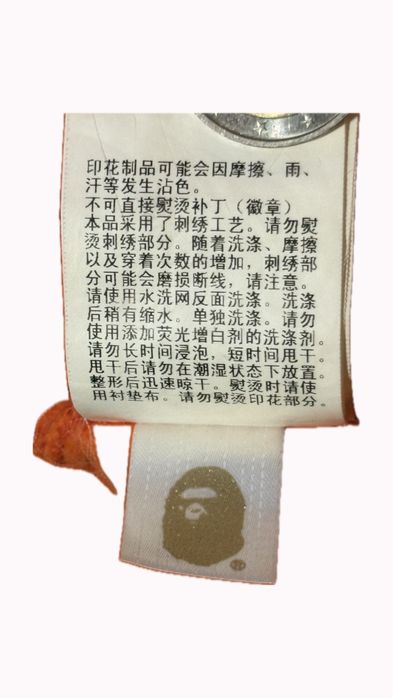 印花制品可能会因摩擦、雨、
汗等发生沾色。
不可直接熨烫补丁（徽章）
本品采用了刺绣工艺。请勿熨
烫刺绣部分。随着洗涤、摩擦
以及穿着次数的增加，刺绣部
分可能会磨损断线，请注意。
请使用水洗网反面洗涤。洗涤
后稍有缩水。单独洗涤。请勿
使用添加荧光增白剂的洗涤剂。
请勿长时间浸泡，短时间甩干。
甩干后请勿在潮湿状态下放置。
整形后迅速晾干。熨烫时请使
用衬垫布。请勿熨烫印花部分。